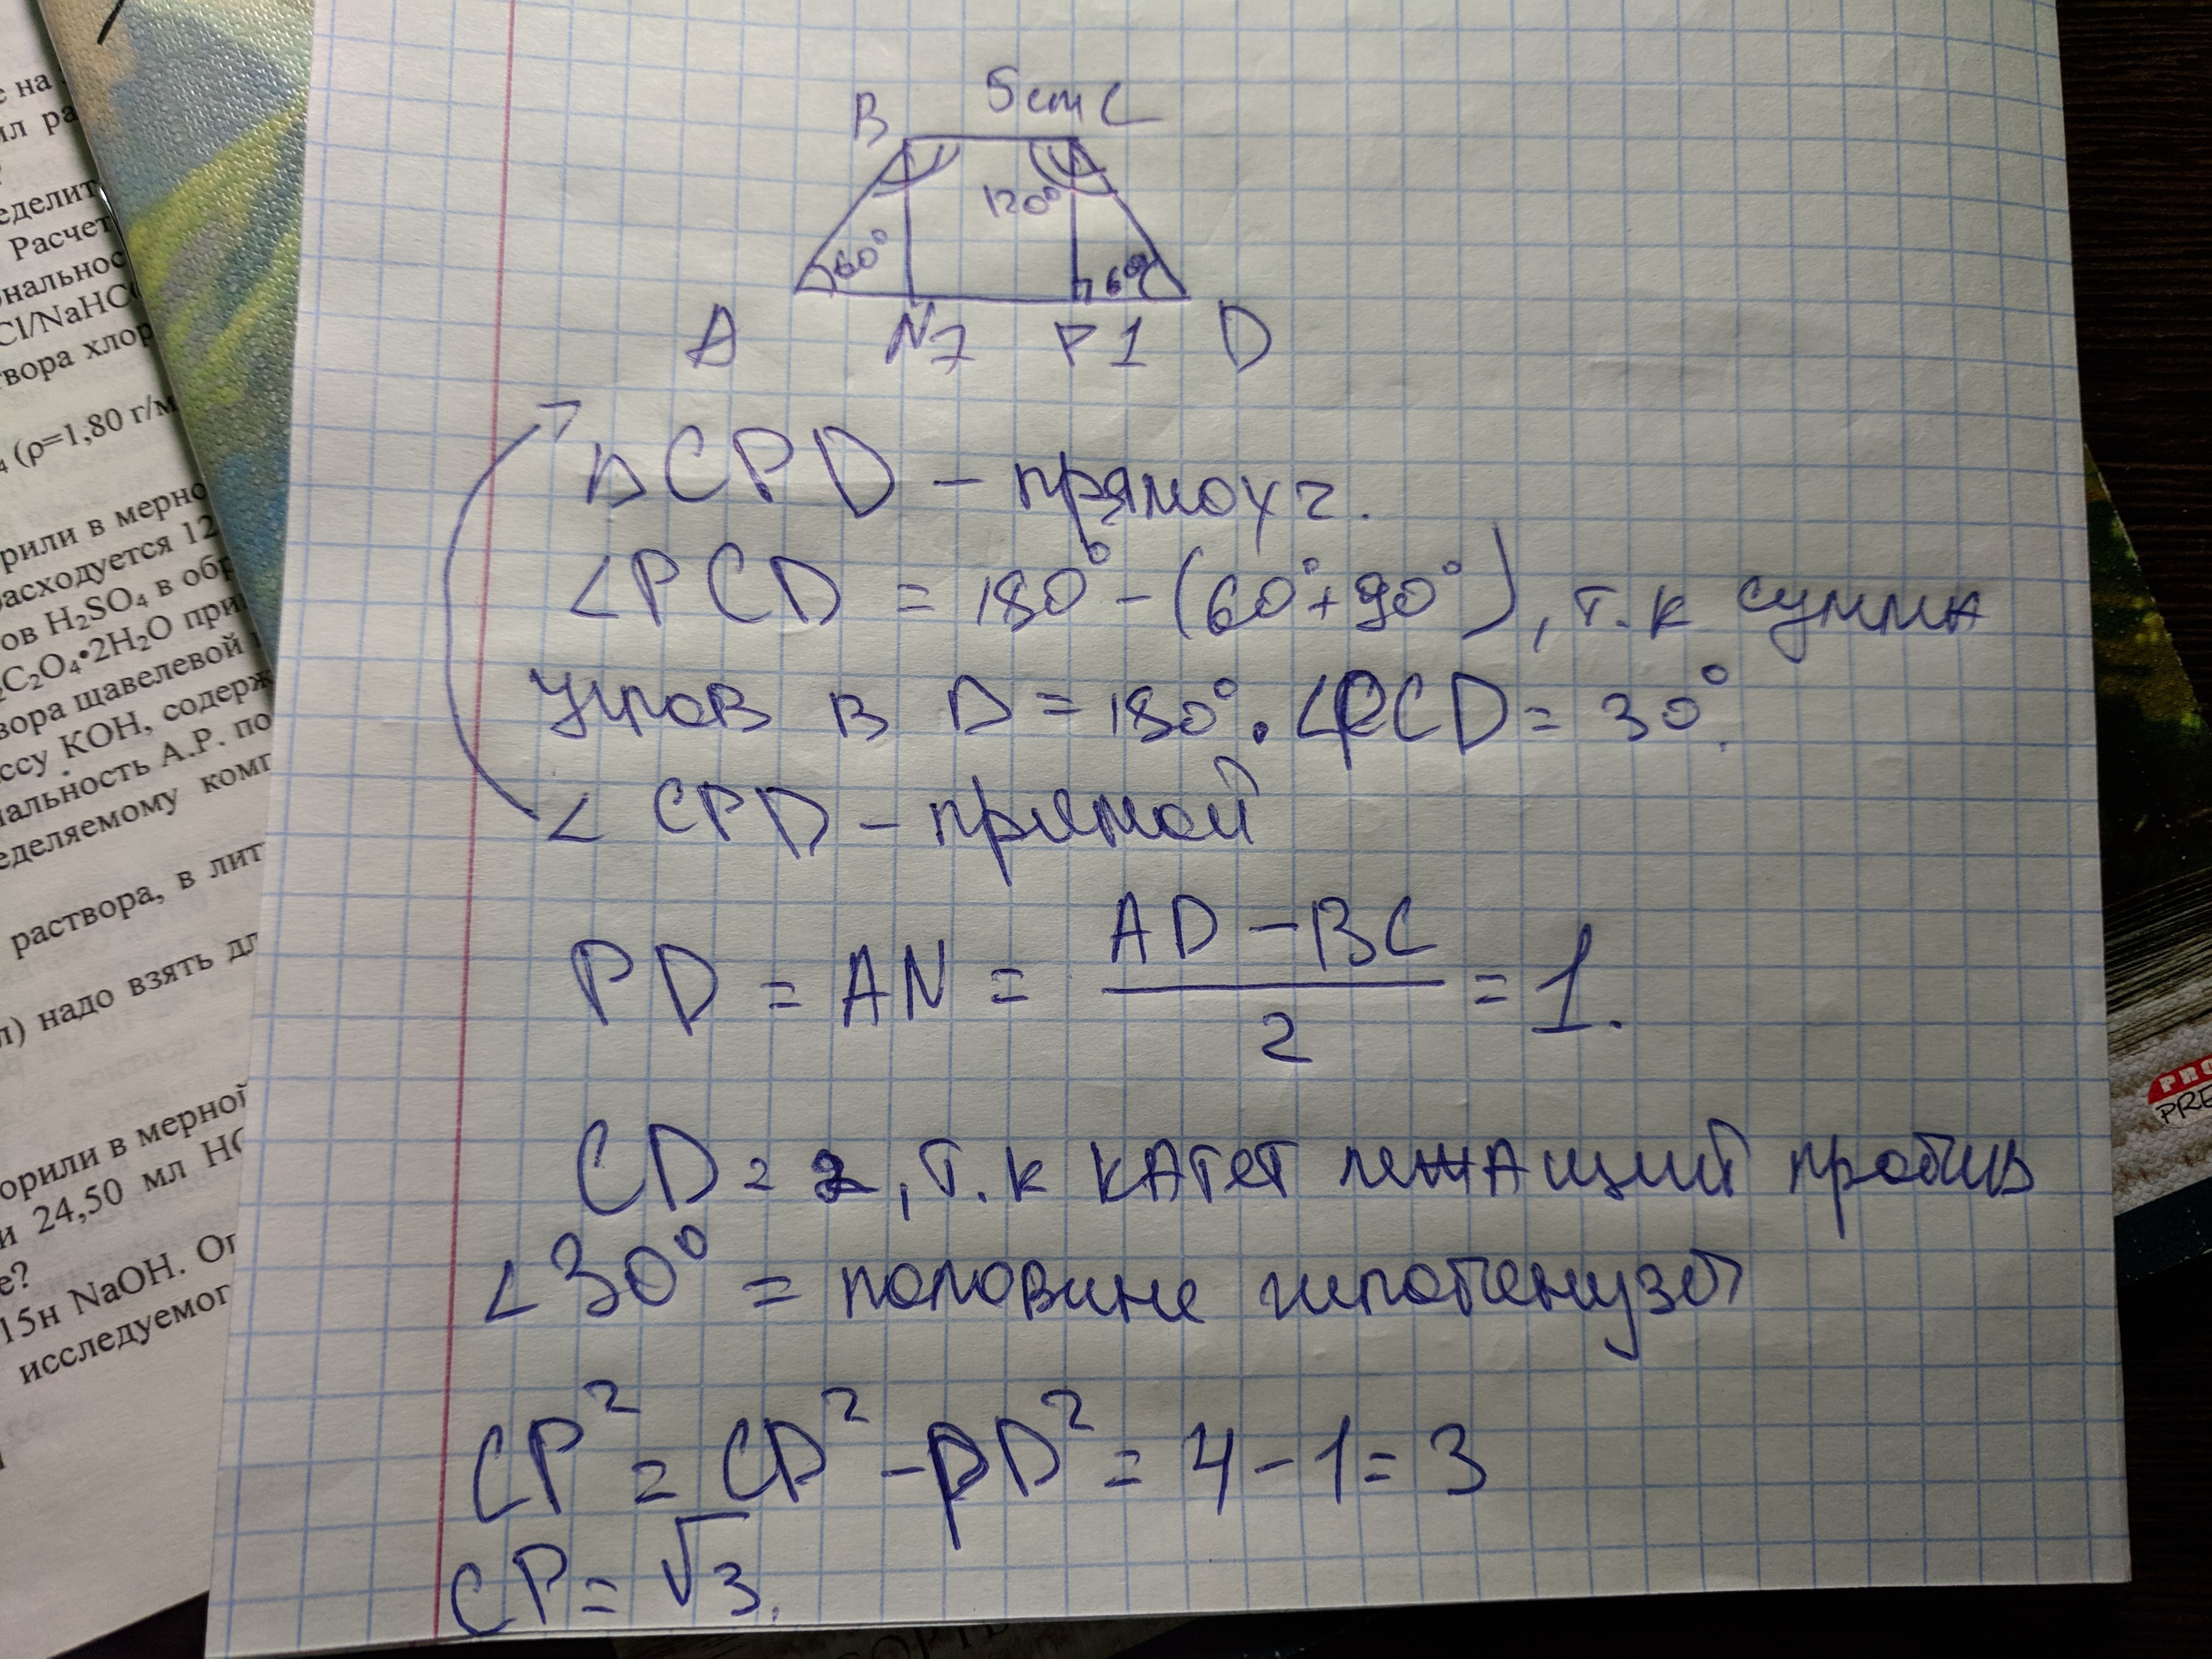 5 cm
B C
120°
60° 60°
A N 7 P 1 D
Δ CPD – прямоуг.
∠PCD = 180° – (60°+90°), т.к сумма
углов в Δ = 180°. ∠PCD = 30°.
∠ CPD – прямой
PD = AN = AD – BC / 2 = 1.
CD = 2, т.к катет лежащий против
∠30° = половине гипотенузы
CP² = CD² – PD² = 4 – 1 = 3
CP = √3.
е на
ил ра
?
еделит
Расчет
ональнос
Cl/NaHC
твора хлор
₄ (ρ=1,80 г/м
рили в мерно
расходуется 12
ов H₂SO₄ в обр
₂C₂O₄•2H₂O при
вора щавелевой
ссу KOH, содерж
нальность А.Р. по
еделяемому комп
раствора, в лит
л) надо взять дл
орили в мерной
и 24,50 мл
е?
15н NaOH. Оп
исследуемог
PRO
PRE